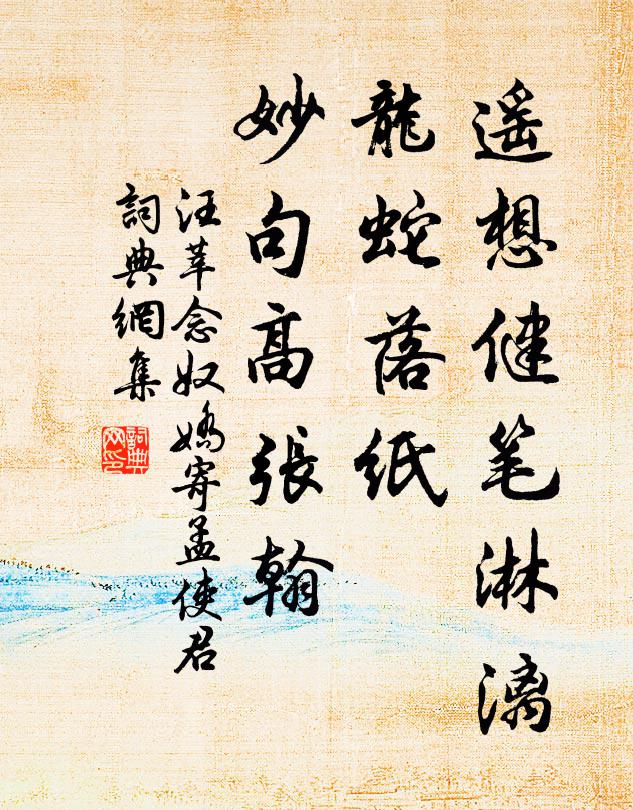 遥想健笔淋漓
龍蛇落纸
妙句高張翰
汪莘念奴嬌寄孟使君
詞典網集
詞典網印